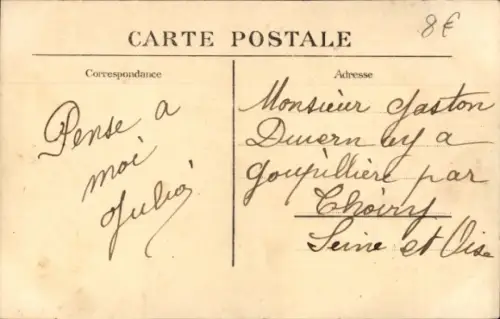 8€
CARTE POSTALE
Correspondance
Adresse
Pense a
moi
Julia
Monsieur Gaston
Duverney a
Goupillière par
Thoiry
Seine et Oise